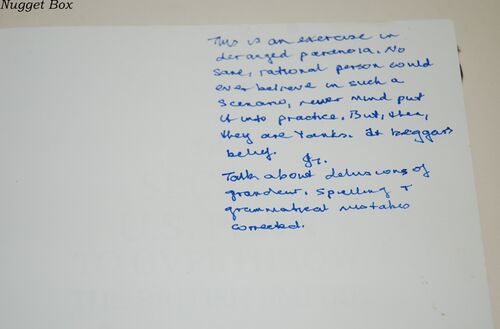 Nugget Box
This is an exercise in
deranged paranoia. No
sane, rational person could
ever believe in such a
scenario, never mind put
it into practice. But, then,
they are Yanks. It beggars
belief.
Talk about delusions of
grandeur. Spelling +
grammatical mistakes
corrected.